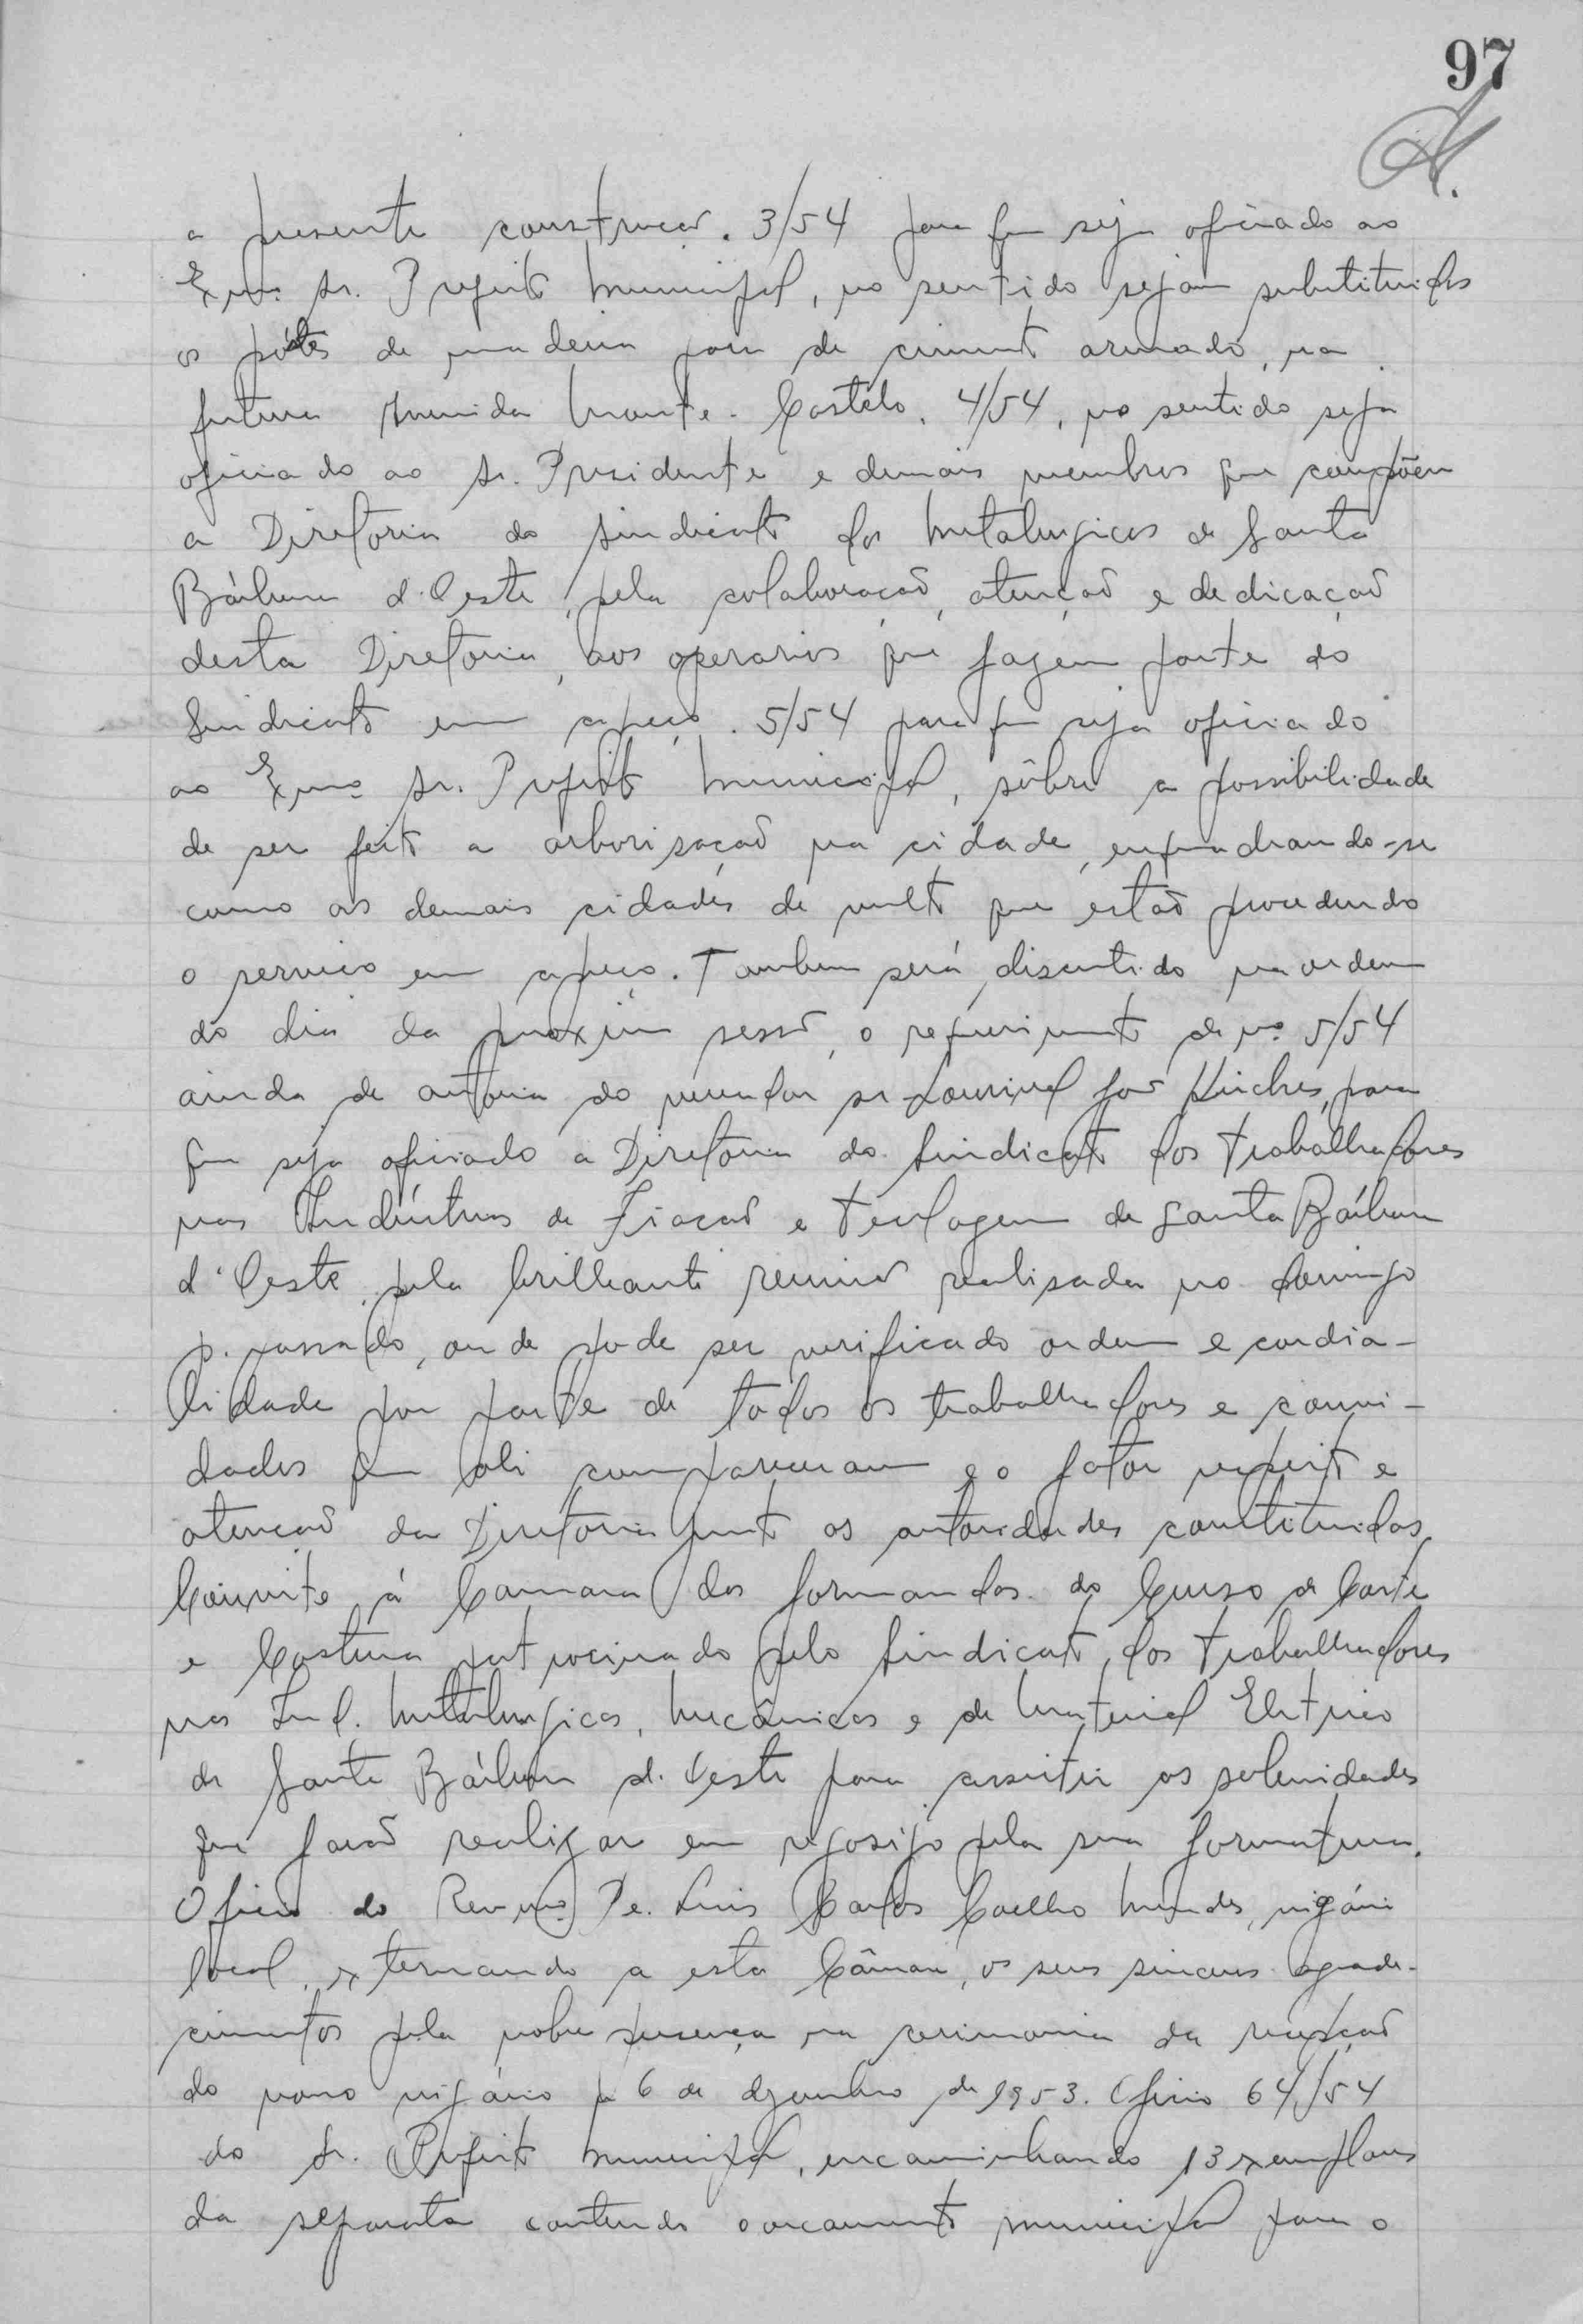 97
a presente construção. 3/54 para que seja oficiado ao
Exmo. Sr. Prefeito Municipal, no sentido sejam substituidos
os póstes de madeira para de cimento armado, na
futura Avenida Monte-Castelo. 4/54, no sentido seja
oficiado ao Sr. Presidente e demais membros que compõem
a Diretoria do Sindicato dos Metalurgicos de Santa
Bárbara d'Oeste, pela colaboração, atenção e dedicação
desta Diretoria, aos operarios que fazem parte do
Sindicato em apreço. 5/54 para que seja oficiado
ao Exmo Sr. Prefeito Municipal, sôbre a possibilidade
de ser feito a arborisação na cidade, enquadrando-se
como as demais cidades de vulto que estão procedendo
o serviço em apreço. Tambem será discutido na ordem
do dia da proxima sessão, o requerimento de nº 5/54
ainda de autoria do vereador sr. Lourival para
que seja oficiado a Diretoria do Sindicato dos Trabalhadores
nas Indústrias de Fiação e Tecelagem de Santa Bárbara
d'Oeste, pela brilhante reunião realisada no domingo
p. passado, onde pode ser verificado ordem e cordia-
lidade por parte de todos os trabalhadores e convi-
dados que ali compareceram e o fator respeito e
atenção da Diretoria junto as autoridades constituidas.
Convite á Camara dos formandos do Curso de Corte
e Costura patrocinado pelo Sindicato dos Trabalhadores
nas Ind. Metalurgicas, Mecânicas e de Material Eletrico
de Santa Bárbara d'Oeste para assistir as solenidades
que farão realizar em regosijo pela sua formatura.
Oficio do Revmo. Pe. Luis Carlos Coelho Mendes, vigário
local, externando a esta Câmara, os seus sinceros agrade-
cimentos pela nobre presença na cerimonia da recepção
do novo vigário a 6 de dezembro de 1953. Oficio 64/54
do Sr. Prefeito Municipal, encaminhando 13 exemplares
da separata contendo o orcamento municipal para o